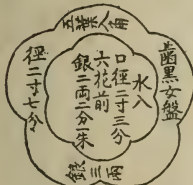 歯黒女盤
五葉入角
徑二寸七分
銀三両
水入
口徑二寸三分
六花前
銀二両二分一朱